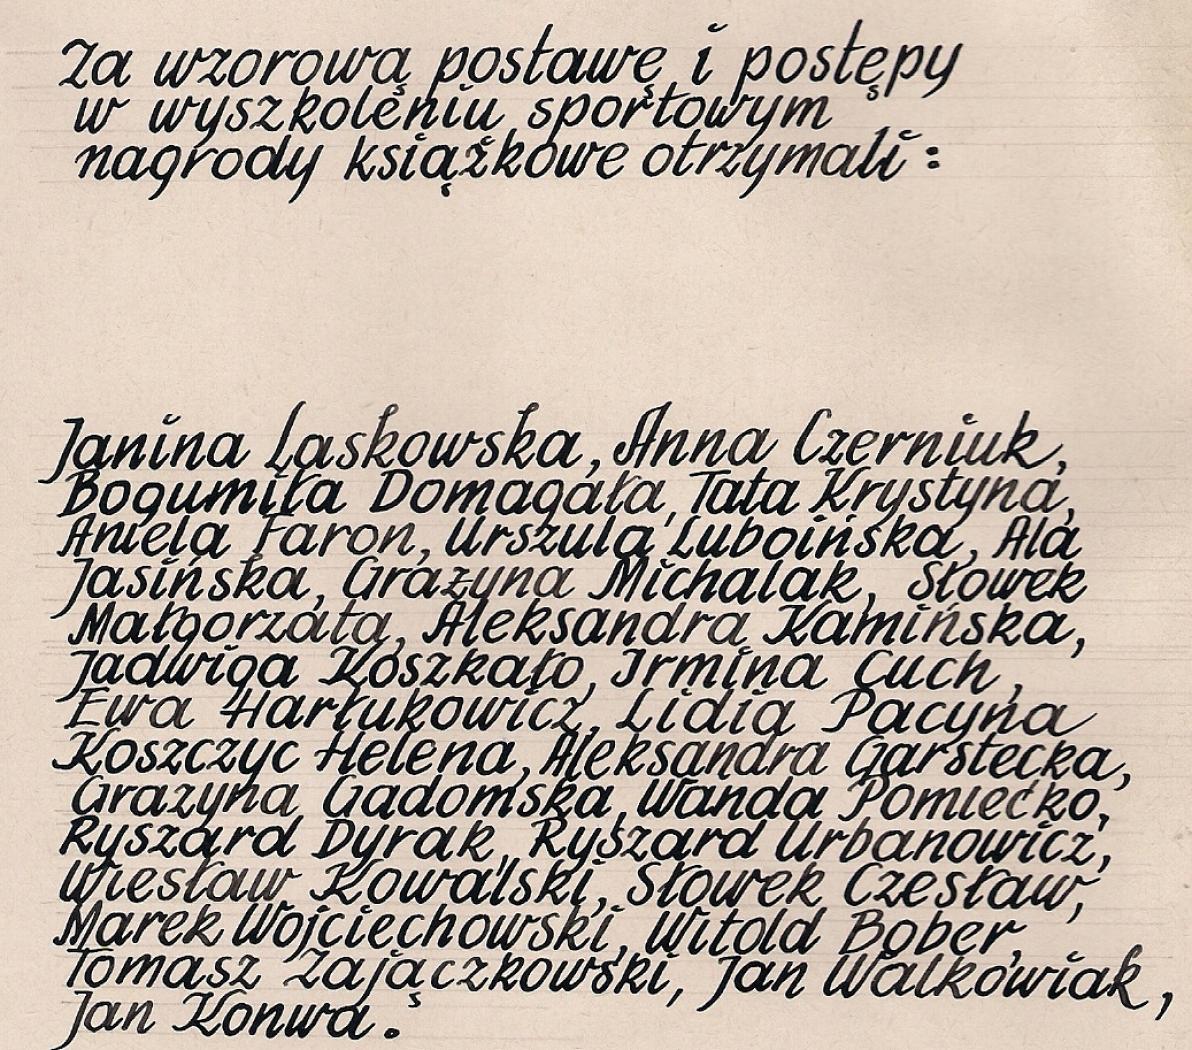 Za wzorową postawę i postępy
w wyszkoleniu sportowym
nagrody książkowe otrzymali:
Janina Laskowska, Anna Czerniuk,
Bogumiła Domagała, Tata Krystyna,
Aniela Faron, Urszula Luboińska, Ala
Jasińska, Grażyna Michalak, Słowek
Małgorzata, Aleksandra Kamińska,
Jadwiga Koszkało, Irmina Cuch,
Ewa Harłukowicz, Lidia Pacyna
Koszczyc Helena, Aleksandra Garstecka,
Grażyna Gadomska, Wanda Pomiećko,
Ryszard Dyrak, Ryszard Urbanowicz,
Wiesław Kowalski, Słowek Czesław,
Marek Wojciechowski, Witold Bober,
Tomasz Zajączkowski, Jan Walkowiak,
Jan Konwa.